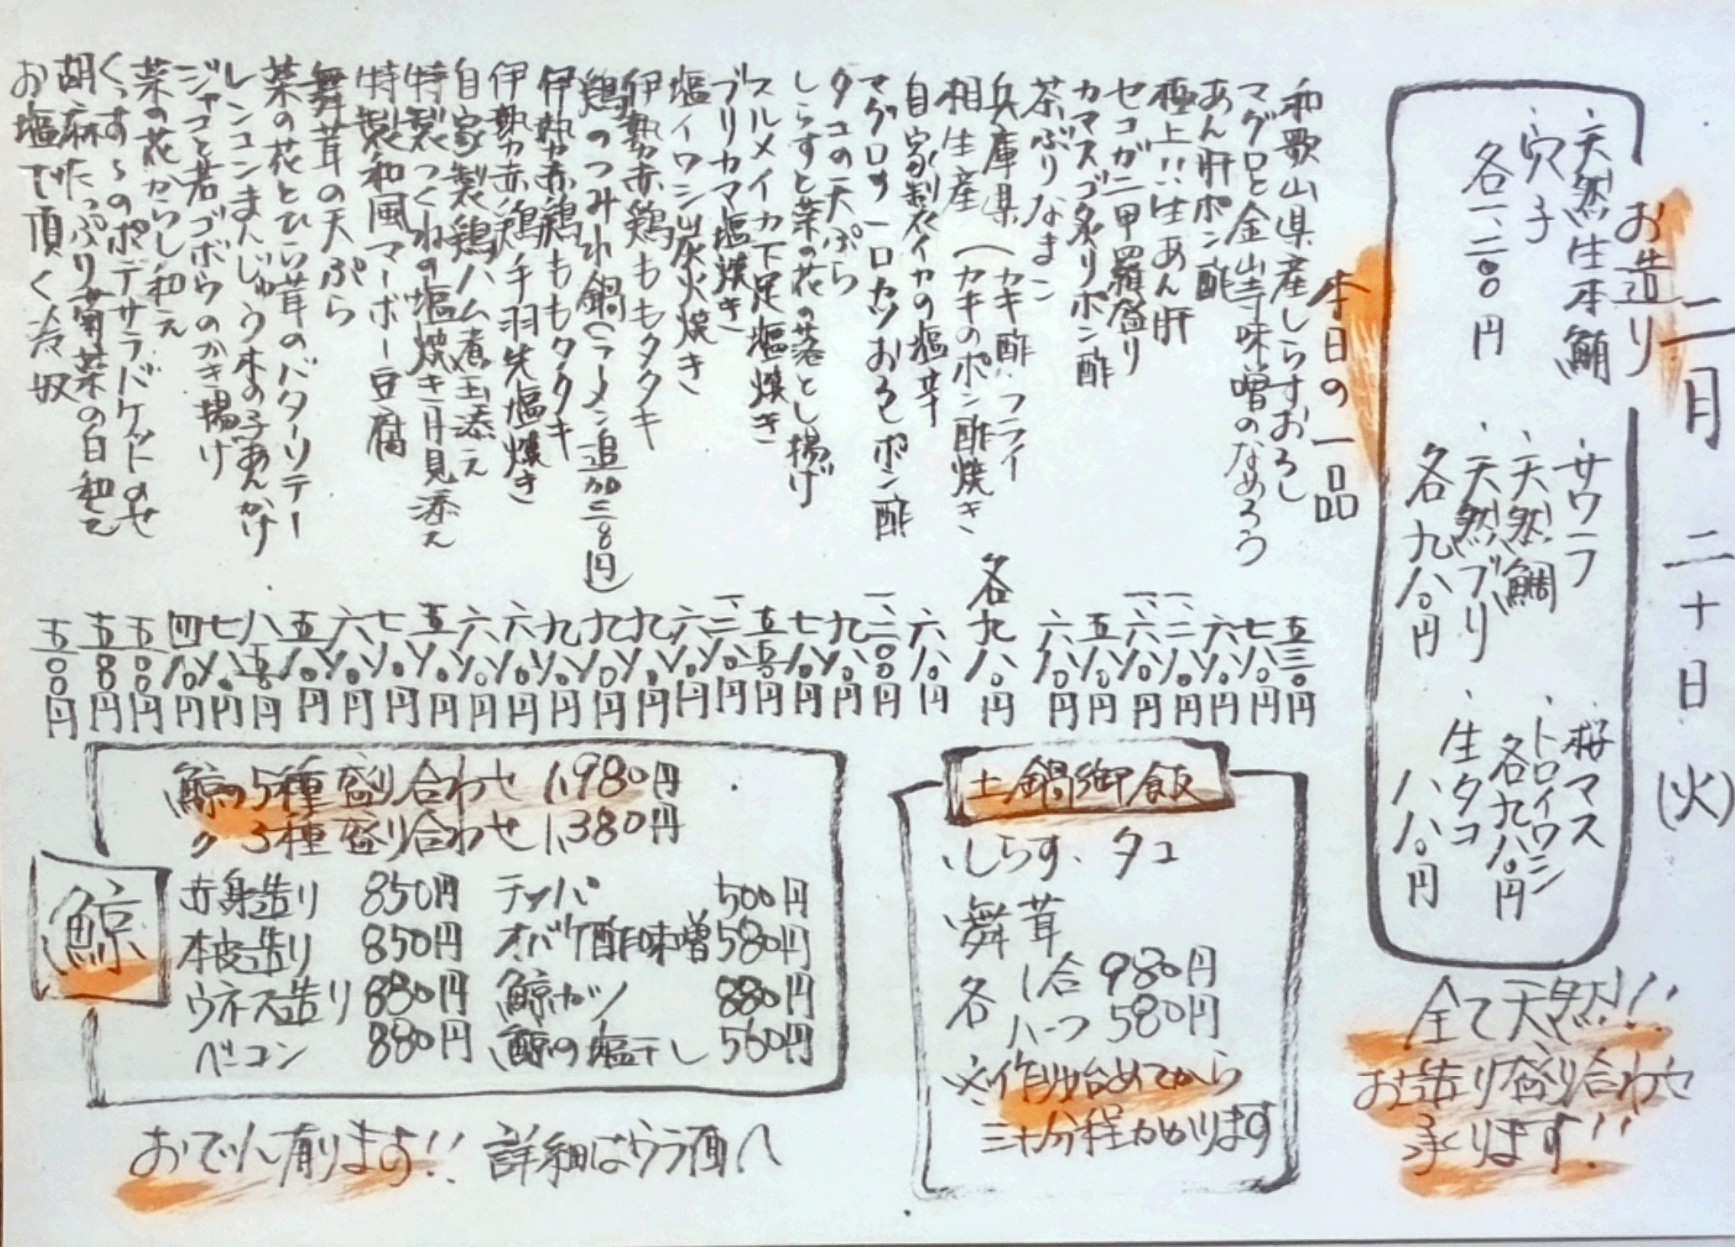 二月二十日(火)
お造り
・天然生本鮪
・穴子
各一、二〇〇円
・サワラ
・天然鯛
・天然ブリ
各九八〇円
・桜マス
・トロイワシ
各九八〇円
・生タコ
八八〇円
全て天然!!
お造り盛り合わせ
承ります!!
本日の一品
和歌山県産しらすおろし 五三〇円
マグロと金山寺味噌のなめろう 七八〇円
あん肝ポン酢 六八〇円
極上!!生あん肝 一、二八〇円
セコガニ甲羅盛り 一、六八〇円
カマスゴ炙りポン酢 五八〇円
茶ぶりなまこ 六八〇円
兵庫県 (カキ酢・フライ
相生産 (カキのポン酢焼き 各九八〇円
自家製イカの塩辛 六八〇円
マグロの一口カツおろしポン酢 一、二〇〇円
タコの天ぷら 九八〇円
しらすと菜の花の落とし揚げ 七八〇円
スルメイカ下足塩焼き 五五〇円
ブリカマ塩焼き 一、二八〇円
塩イワシ炭火焼き 六八〇円
伊勢赤鶏ももタタキ 九八〇円
鶏のつみれ鍋(ラーメン追加三八〇円) 九八〇円
伊勢赤鶏ももタタキ 九八〇円
伊勢赤鶏手羽先塩焼き 六八〇円
自家製鶏ハム煮玉添え 六八〇円
特製つくねの塩焼き月見添え 五八〇円
特製和風マーボー豆腐 七八〇円
舞茸の天ぷら 六八〇円
菜の花とひら茸のバターソテー 五八〇円
レンコンまんじゅう木の子あんかけ 八五〇円
ジャコと若ゴボウのかき揚げ 七八〇円
菜の花からし和え 四八〇円
のポテサラバケットのせ 五〇〇円
胡麻たっぷり菊菜の白和え 五八〇円
お塩で頂く冷奴 五〇〇円
土鍋御飯
・しらす・タコ
・舞茸
各 1合 980円
ハーフ 580円
※作り始めてから
三十分程かかります
鯨
鯨の5種盛り合わせ 1,980円
〃 3種盛り合わせ 1,380円
赤身造り 850円 テッパ 500円
本皮造り 850円 オバケ酢味噌 580円
ウネス造り 880円 鯨カツ 880円
ベーコン 880円 鯨の塩干し 560円
おでん有ります!! 詳細はウラ面へ